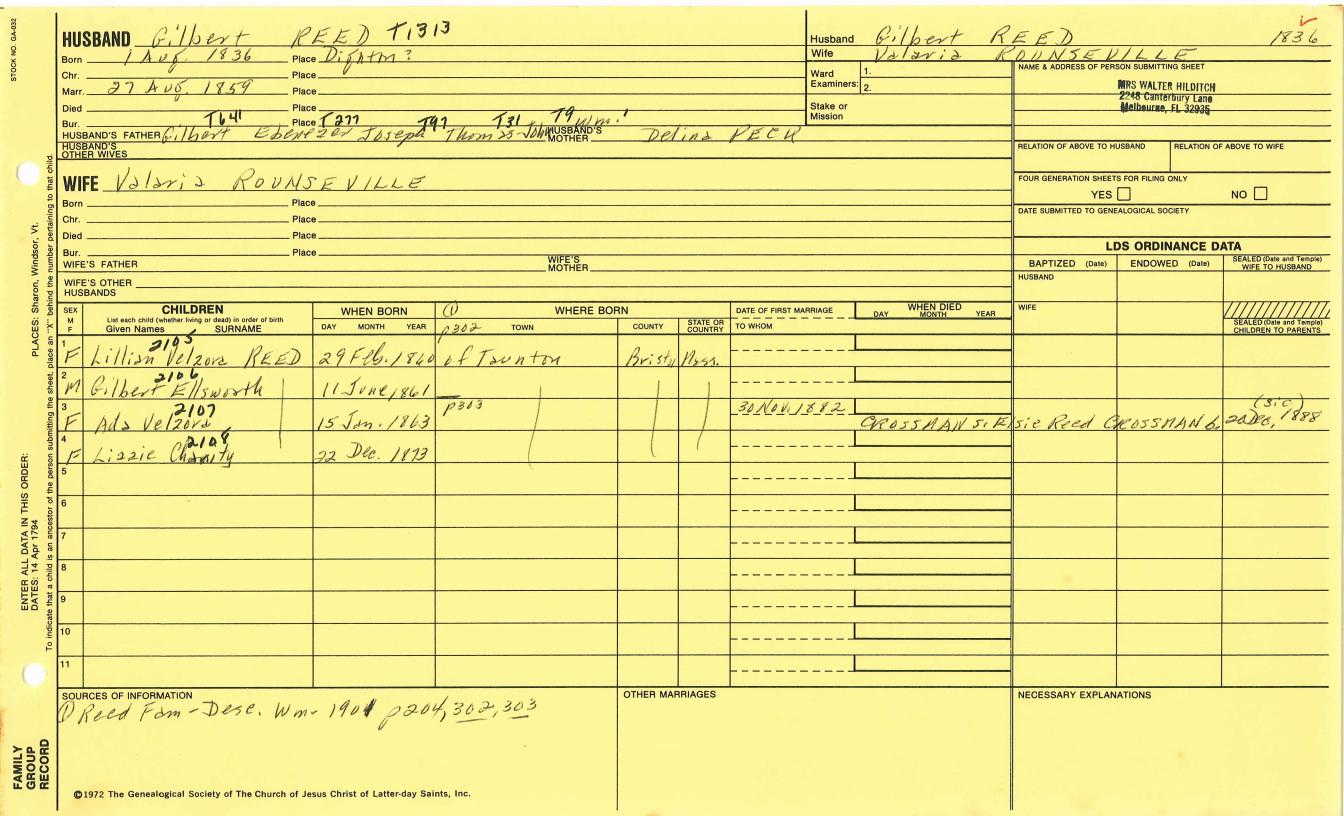 STOCK NO. GA-032
HUSBAND Gilbert REED T1313
Born 1 Aug. 1836 Place Dighton?
Chr. Place
Marr. 27 Aug. 1859 Place
Died Place
Bur. T641 Place T277 T97 T31 T9 Wm.'
HUSBAND'S FATHER Gilbert Ebenezer Joseph Thomas-John HUSBAND'S MOTHER Delina PECK
HUSBAND'S OTHER WIVES
WIFE Valaria ROUNSEVILLE
Born Place
Chr. Place
Died Place
Bur. Place
WIFE'S FATHER WIFE'S MOTHER
WIFE'S OTHER HUSBANDS
Husband Gilbert REED 1836
Wife Valaria ROUNSEVILLE
Ward Examiners: 1.
2.
Stake or Mission
NAME & ADDRESS OF PERSON SUBMITTING SHEET
MRS WALTER HILDITCH
2248 Canterbury Lane
Melbourne, FL 32935
RELATION OF ABOVE TO HUSBAND RELATION OF ABOVE TO WIFE
FOUR GENERATION SHEETS FOR FILING ONLY
YES NO
DATE SUBMITTED TO GENEALOGICAL SOCIETY
LDS ORDINANCE DATA
BAPTIZED (Date) ENDOWED (Date) SEALED (Date and Temple) WIFE TO HUSBAND
HUSBAND
WIFE
SEALED (Date and Temple) CHILDREN TO PARENTS
SEX M F CHILDREN WHEN BORN (1) WHERE BORN DATE OF FIRST MARRIAGE WHEN DIED
List each child (whether living or dead) in order of birth
Given Names SURNAME DAY MONTH YEAR p302 TOWN COUNTY STATE OR COUNTRY TO WHOM DAY MONTH YEAR
2105
1 F Lillian Velzora REED 29 Feb. 1860 of Taunton Bristy Mass.
2106
2 M Gilbert Ellsworth 11 June 1861
2107 p303 30 Nov. 1882 (sic)
3 F Ada Velzora 15 Jan. 1863 CROSSMAN s. Elsie Reed CROSSMAN b. 20 Dec, 1888
2108
4 F Lizzie Charity 22 Dec. 1873
5
6
7
8
9
10
11
SOURCES OF INFORMATION
(1) Reed Fam-Desc. Wm- 1901 p204, 302, 303
OTHER MARRIAGES
NECESSARY EXPLANATIONS
©1972 The Genealogical Society of The Church of Jesus Christ of Latter-day Saints, Inc.
ENTER ALL DATA IN THIS ORDER:
DATES: 14 Apr 1794
PLACES: Sharon, Windsor, Vt.
To indicate that a child is an ancestor of the person submitting the sheet, place an "X" behind the number pertaining to that child.
FAMILY GROUP RECORD